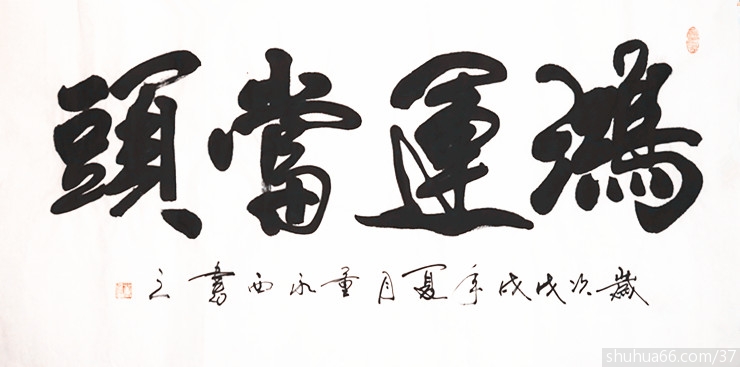 鴻運當頭
歲次戊戌年夏月董永西書之
shuhua66.com/37